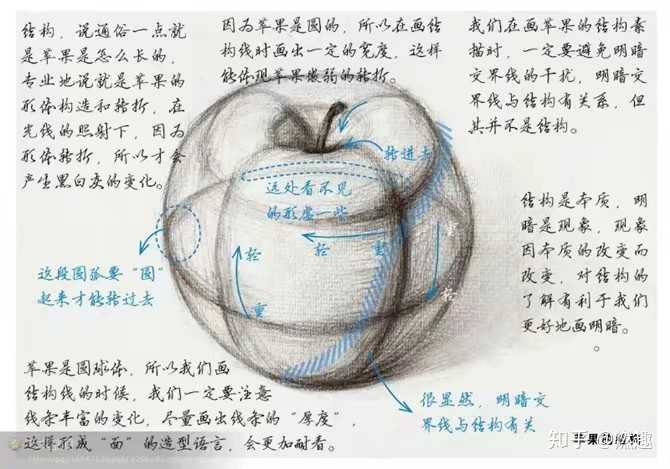 结构，说通俗一点就
是苹果是怎么长的，
专业地说就是苹果的
形体构造和转折，在
光线的照射下，因为
形体转折，所以才会
产生黑白灰的变化。
因为苹果是圆的，所以在画结
构线时画出一定的宽度，这样
能体现苹果微弱的转折。
我们在画苹果的结构素
描时，一定要避免明暗
交界线的干扰，明暗交
界线与结构有关系，但
其并不是结构。
转进去
远处看不见
的形虚一些
轻
轻
重
重
重
轻
结构是本质，明
暗是现象，现象
因本质的改变而
改变，对结构的
了解有利于我们
更好地画明暗。
这段圆弧要“圆”
起来才能转过去
苹果是圆球体，所以我们画
结构线的时候，我们一定要注意
线条丰富的变化，尽量画出线条的“厚度”，
这样形成“面”的造型语言，会更加耐看。
很显然，明暗交
界线与结构有关
知乎